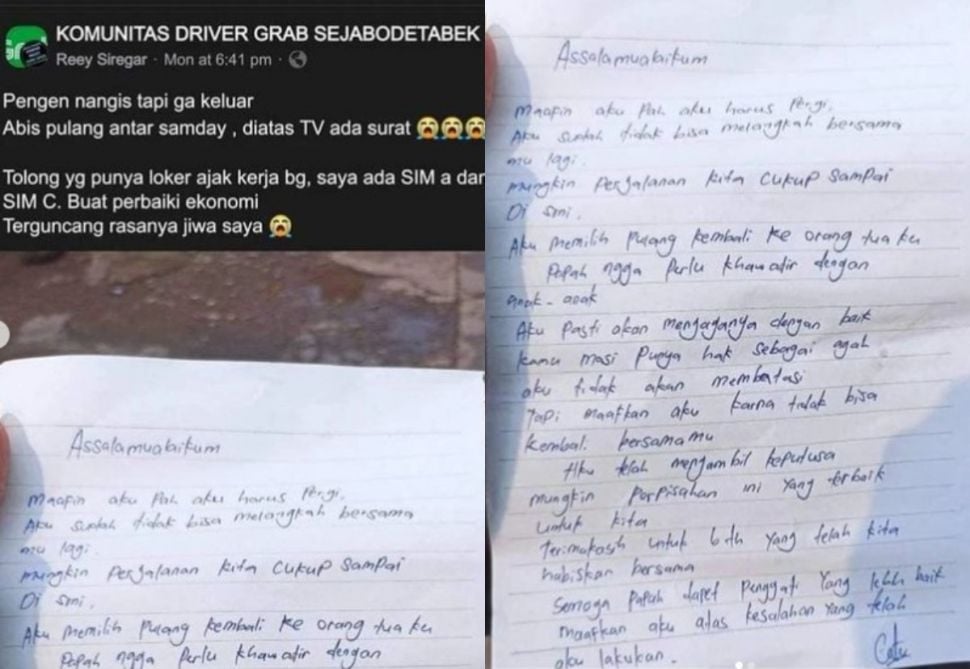 KOMUNITAS DRIVER GRAB SEJABODETABEK
Reey Siregar · Mon at 6:41 pm ·
Pengen nangis tapi ga keluar
Abis pulang antar samday , diatas TV ada surat 😭😭😭
Tolong yg punya loker ajak kerja bg, saya ada SIM a dan
SIM C. Buat perbaiki ekonomi
Terguncang rasanya jiwa saya 😭
Assalamualaikum
Maafin aku Pah aku harus Pergi.
Aku sudah tidak bisa melangkah bersama
mu lagi.
mungkin Perjalanan kita cukup sampai
Di sini.
Aku memilih pulang kembali ke orang tua ku
Papah ngga Perlu khawatir dengan
Assalamualaikum
Maafin aku Pah aku harus Pergi.
Aku sudah tidak bisa melangkah bersama
mu lagi.
mungkin Perjalanan kita cukup sampai
Di sini.
Aku memilih pulang kembali ke orang tua ku
Papah ngga Perlu khawatir dengan
anak-anak
Aku Pasti akan menjaganya dengan baik
kamu masi Punya hak sebagai ayah
aku tidak akan membatasi
Tapi maafkan aku karna tidak bisa
kembali bersamamu
Aku telah mengambil keputusa
mungkin Perpisahan ini yang terbaik
untuk kita
Terimakasih untuk 6 th yang telah kita
habiskan bersama
Semoga Papah dapet Penggati yang lebih baik
maafkan aku atas kesalahan yang telah
aku lakukan.